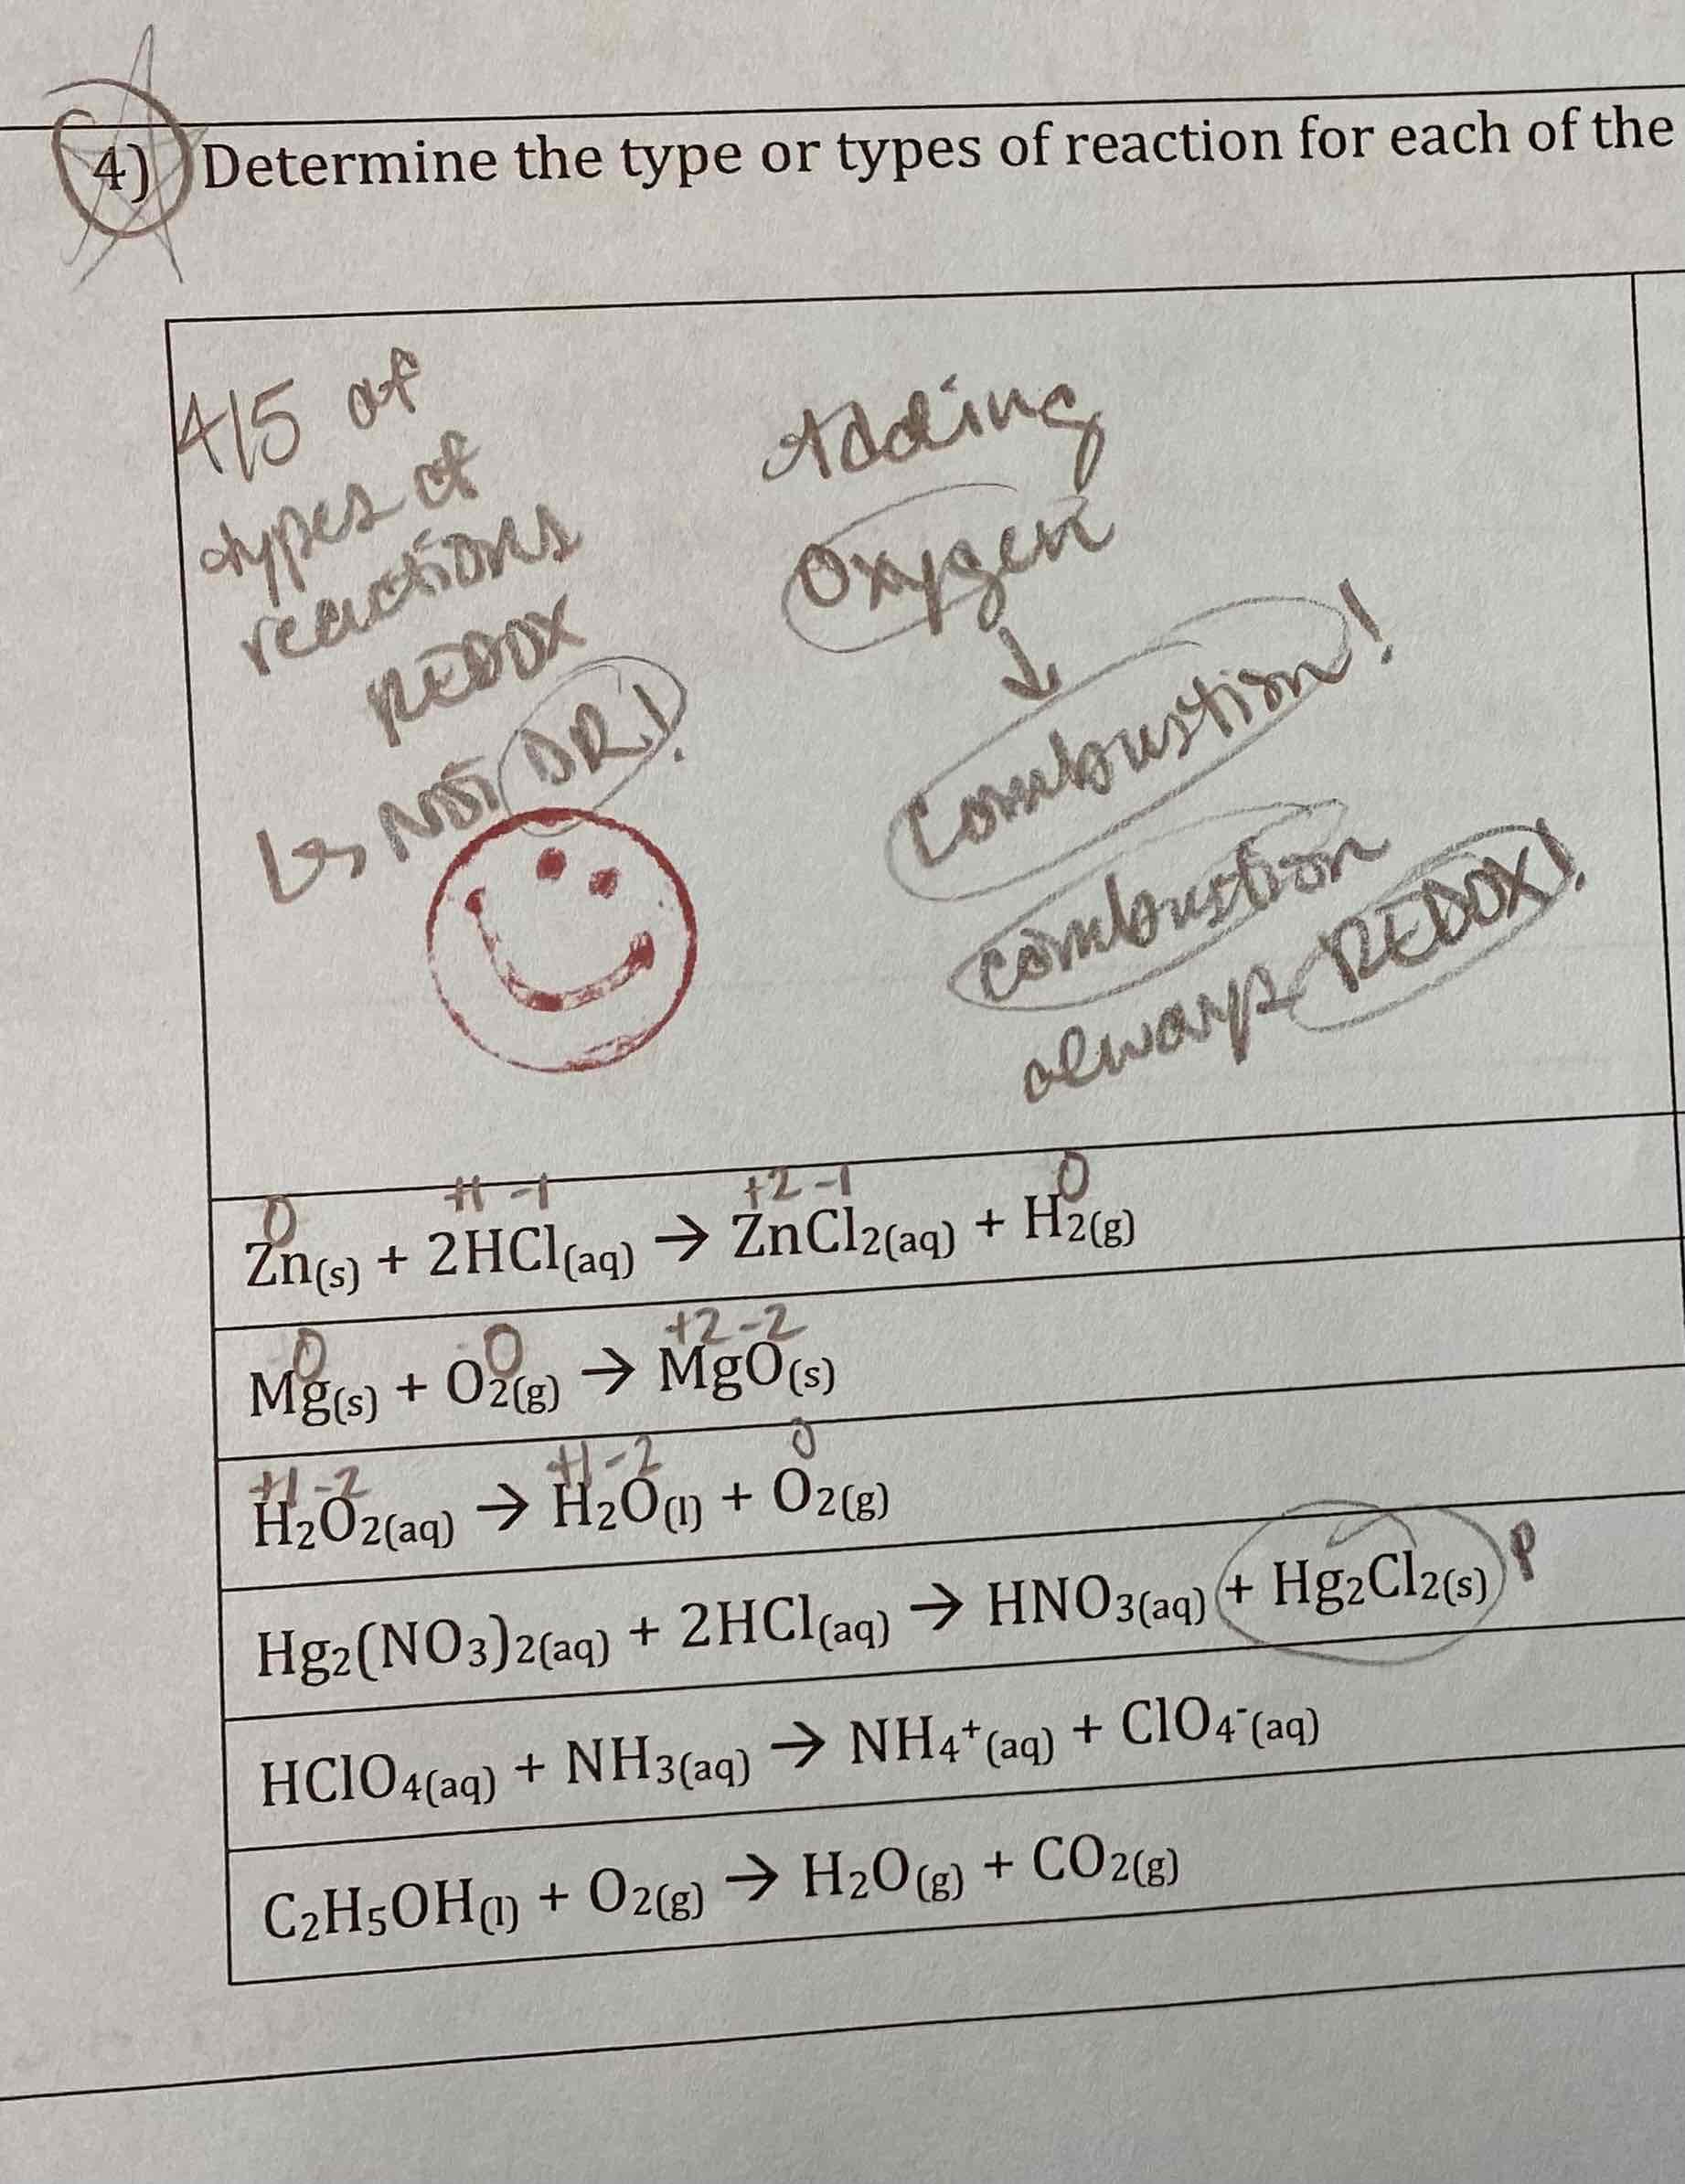 4) Determine the type or types of reaction for each of the
4/5 of
types of
reactions
REDOX
↳ NOT DR!
Adding
Oxygen
↓
Combustion!
combustion
always REDOX!
0 +1 -1 +2 -1 0
Zn(s) + 2HCl(aq) → ZnCl2(aq) + H2(g)
0 0 +2 -2
Mg(s) + O2(g) → MgO(s)
+1 -2 +1 -2 0
H2O2(aq) → H2O(l) + O2(g)
Hg2(NO3)2(aq) + 2HCl(aq) → HNO3(aq) + Hg2Cl2(s) P
HClO4(aq) + NH3(aq) → NH4+(aq) + ClO4-(aq)
C2H5OH(l) + O2(g) → H2O(g) + CO2(g)